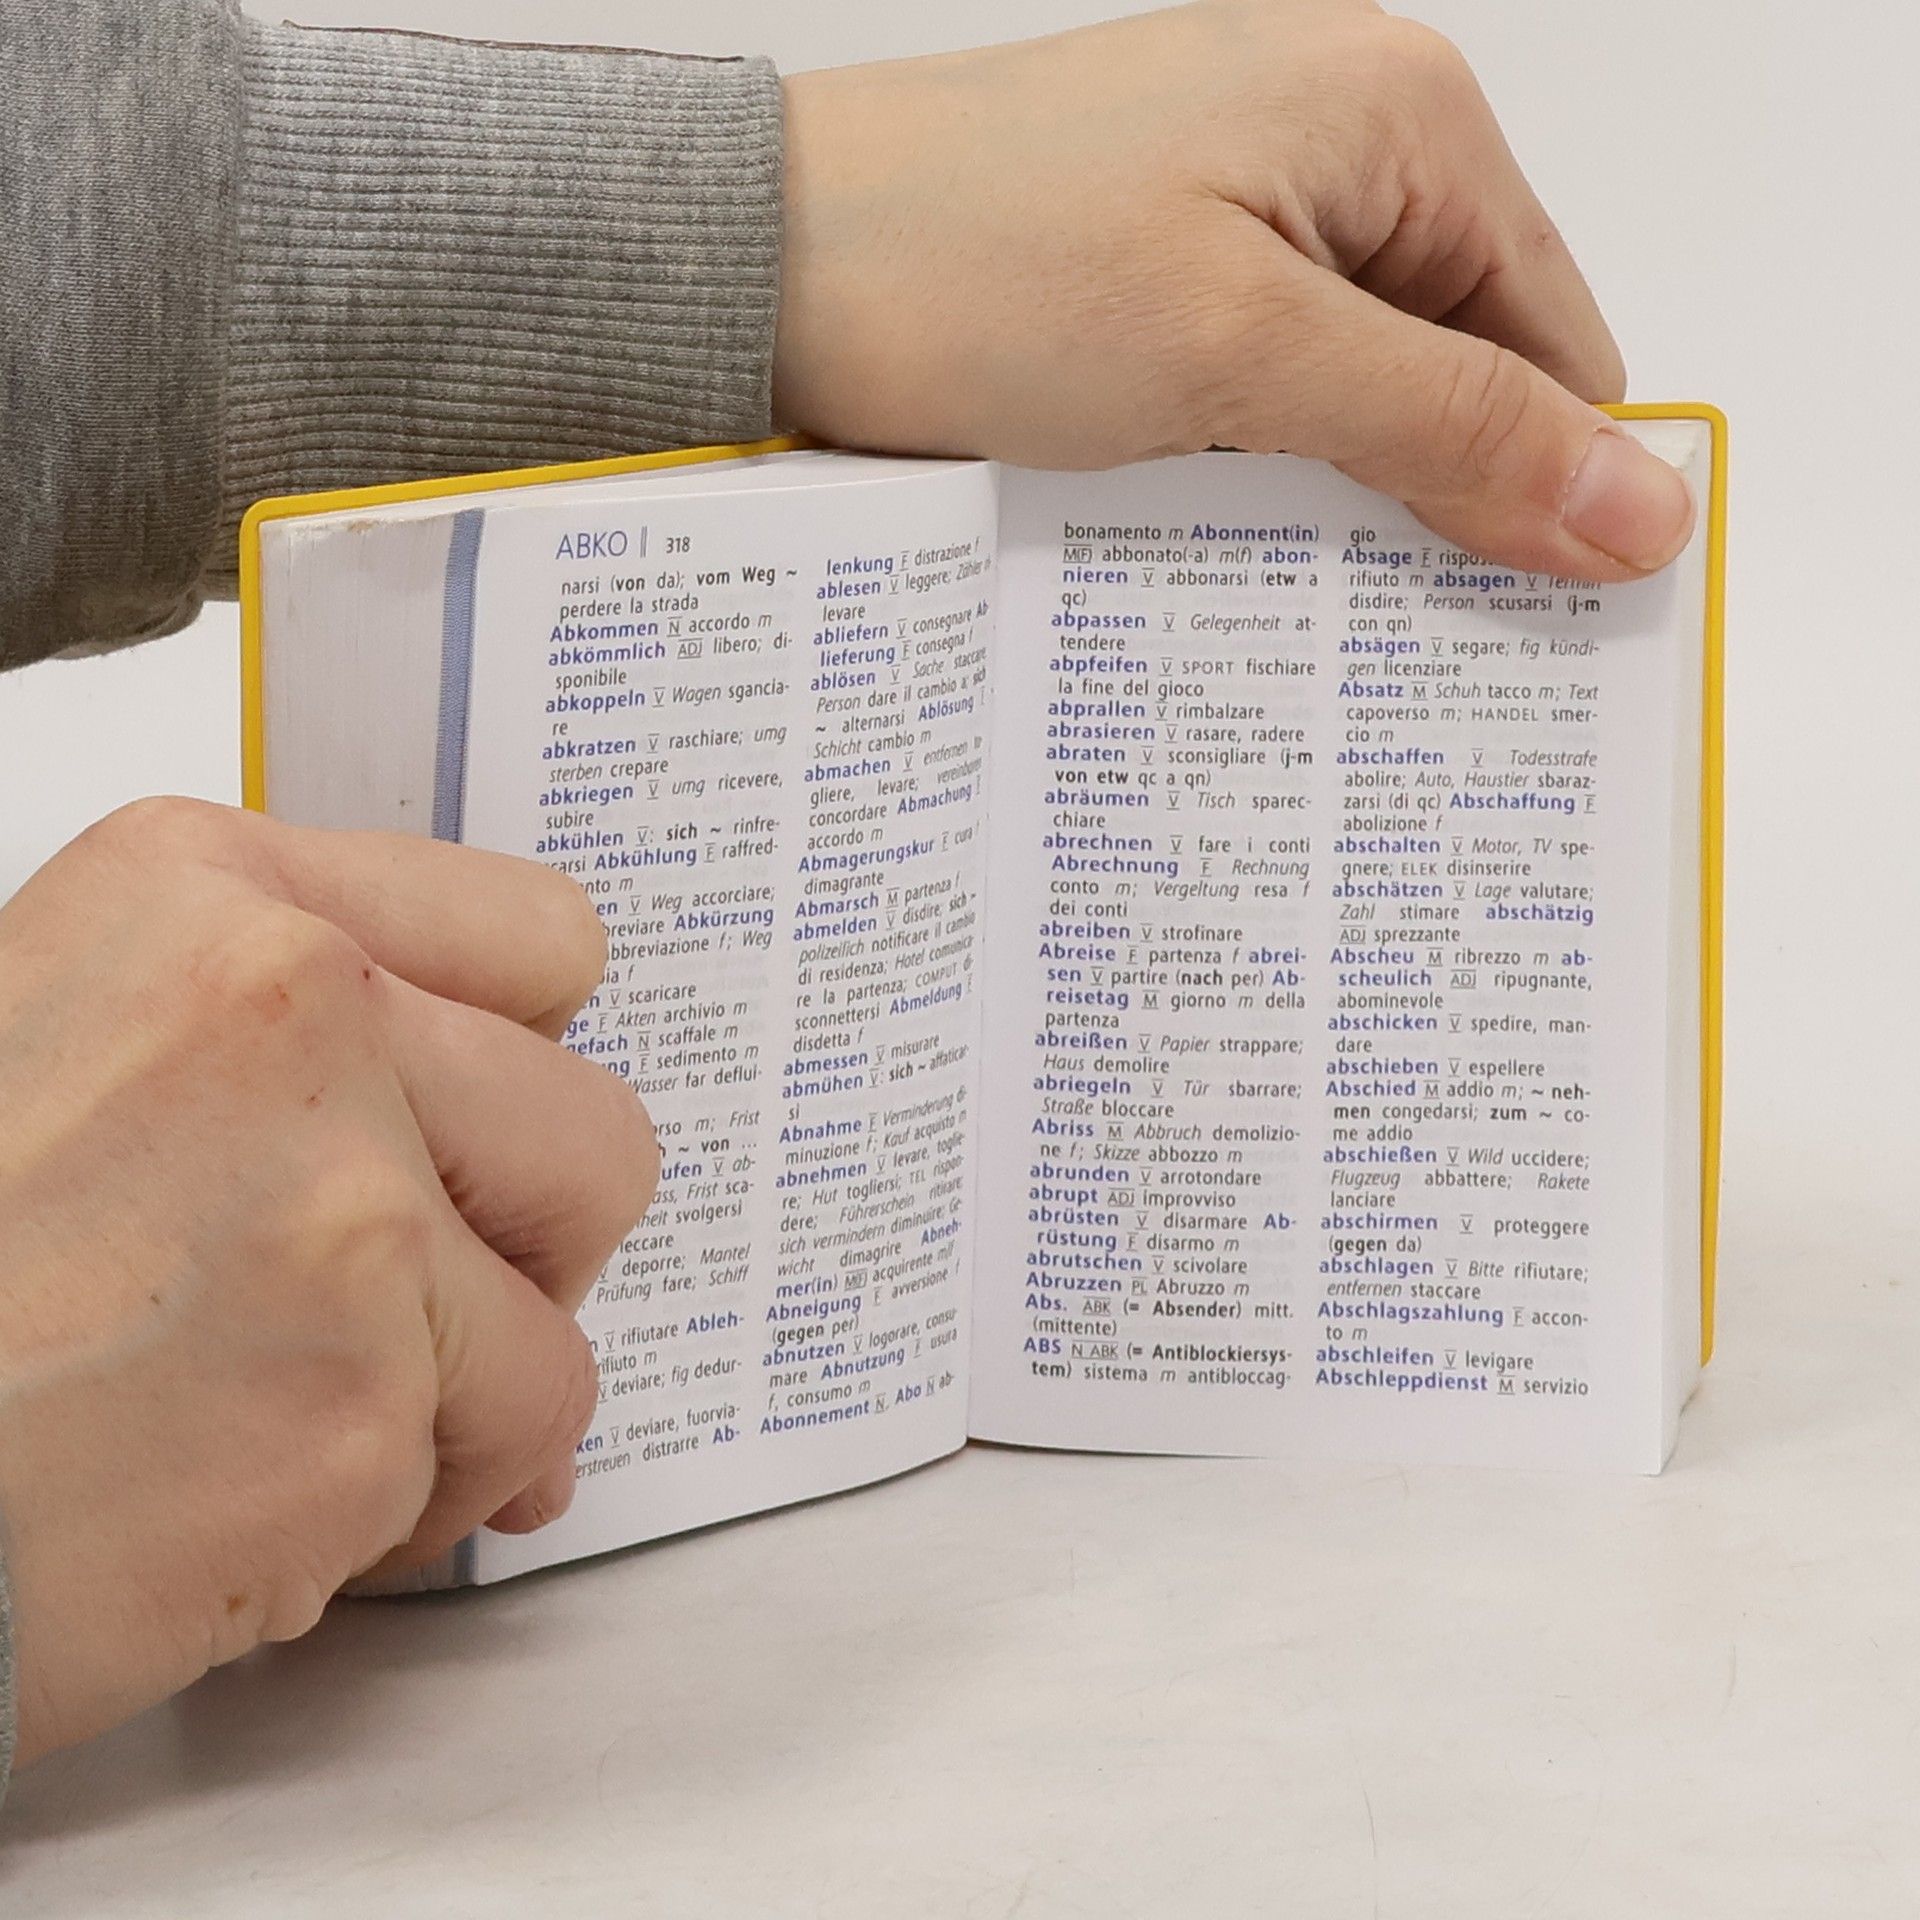 ABKO || 318
narsi (von da); vom Weg ~
perdere la strada
Abkommen N accordo m
abkömmlich ADJ libero; di-
sponibile
abkoppeln V Wagen sgancia-
re
abkratzen V raschiare; umg
sterben crepare
abkriegen V umg ricevere,
subire
abkühlen V: sich ~ rinfre-
Abkühlung F raffred-
m
V Weg accorciare;
Abkürzung
f; Weg
f
V scaricare
F Akten archivio m
N scaffale m
F sedimento m
Wasser far deflui-
m; Frist
~ von ...
V ab-
Frist sca-
svolgersi
V deporre; Mantel
Prüfung fare; Schiff
V rifiutare Ableh-
m
V deviare; fig dedur-
V deviare, fuorvia-
distrarre Ab-
lenkung F distrazione f
ablesen V leggere; Zähler
levare
abliefern V consegnare Ab
lieferung F consegna f
ablösen V Sache staccare
Person dare il cambio a; sich
~ alternarsi Ablösung F
Schicht cambio m
abmachen V entfernen to
gliere, levare; vereinbaren
concordare Abmachung F
accordo m
Abmagerungskur F cura f
dimagrante
Abmarsch M partenza f
abmelden V disdire; sich ~
polizeilich notificare il cambio
di residenza; Hotel comunica-
re la partenza; COMPUT di-
sconnettersi Abmeldung F
disdetta f
abmessen V misurare
abmühen V: sich ~ affaticar-
si
Abnahme F Verminderung di-
minuzione f; Kauf acquisto m
abnehmen V levare, toglie-
re; Hut togliersi; TEL rispon-
dere; Führerschein ritirare;
sich vermindern diminuire; Ge-
wicht dimagrire Abneh-
mer(in) M(F) acquirente m/f
Abneigung F avversione f
(gegen per)
abnutzen V logorare, consu-
mare Abnutzung F usura
f, consumo m
Abonnement N, Abo N ab-
bonamento m Abonnent(in)
M(F) abbonato(-a) m(f) abon-
nieren V abbonarsi (etw a
qc)
abpassen V Gelegenheit at-
tendere
abpfeifen V SPORT fischiare
la fine del gioco
abprallen V rimbalzare
abrasieren V rasare, radere
abraten V sconsigliare (j-m
von etw qc a qn)
abräumen V Tisch sparec-
chiare
abrechnen V fare i conti
Abrechnung F Rechnung
conto m; Vergeltung resa f
dei conti
abreiben V strofinare
Abreise F partenza f abrei-
sen V partire (nach per) Ab-
reisetag M giorno m della
partenza
abreißen V Papier strappare;
Haus demolire
abriegeln V Tür sbarrare;
Straße bloccare
Abriss M Abbruch demolizio-
ne f; Skizze abbozzo m
abrunden V arrotondare
abrupt ADJ improvviso
abrüsten V disarmare Ab-
rüstung F disarmo m
abrutschen V scivolare
Abruzzen PL Abruzzo m
Abs. ABK (= Absender) mitt.
(mittente)
ABS N ABK (= Antiblockiersys-
tem) sistema m antibloccag-
gio
Absage F
rifiuto m absagen V Termin
disdire; Person scusarsi (j-m
con qn)
absägen V segare; fig kündi-
gen licenziare
Absatz M Schuh tacco m; Text
capoverso m; HANDEL smer-
cio m
abschaffen V Todesstrafe
abolire; Auto, Haustier sbaraz-
zarsi (di qc) Abschaffung F
abolizione f
abschalten V Motor, TV spe-
gnere; ELEK disinserire
abschätzen V Lage valutare;
Zahl stimare abschätzig
ADJ sprezzante
Abscheu M ribrezzo m ab-
scheulich ADJ ripugnante,
abominevole
abschicken V spedire, man-
dare
abschieben V espellere
Abschied M addio m; ~ neh-
men congedarsi; zum ~ co-
me addio
abschießen V Wild uccidere;
Flugzeug abbattere; Rakete
lanciare
abschirmen V proteggere
(gegen da)
abschlagen V Bitte rifiutare;
entfernen staccare
Abschlagszahlung F accon-
to m
abschleifen V levigare
Abschleppdienst M servizio